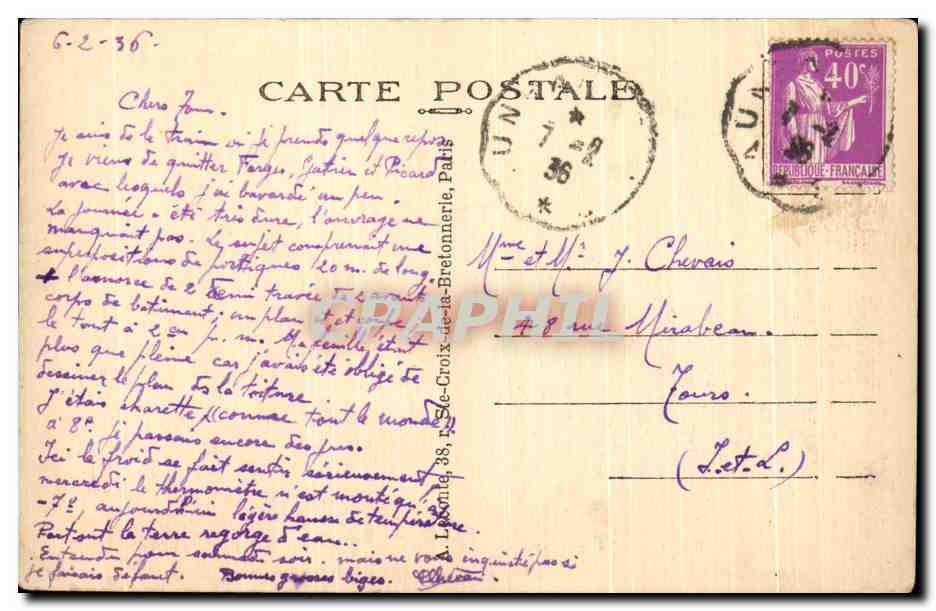 6-2-36-
CARTE POSTALE
Chers Tous.
Je suis ds le train où je prends quelque repos
Je viens de quitter Farges, Gatien et Picard
avec lesquels j'ai bavardé un peu.
La journée a été très dure, l'ouvrage ne
manquait pas. Le sujet comprenait une
superpositions de portiques 20 m. de long
+ l'amorce de 2 demi travée de 2 avant
corps de bâtiment; un plan et coupe
le tout à 2 cm p. m. Ma feuille était
plus que pleine car j'avais été obligé de
dessiner le plan de la toiture
J'étais charette (comme tout le monde)!
à 8h je passais encore des jus.
Ici le froid se fait sentir sérieusement
mercredi le thermomètre n'est monté qu'à
-7°, aujourd'hui légère hausse de température.
Partout la terre regorge d'eau..
Entendu pour samedi soir. mais ne vous inquiétez pas si
je faisais défaut. Bonnes grosses biges.
A. Leconte, 38, r. Ste-Croix-de-la-Bretonnerie, Paris
7 -2
36
POSTES
40c
RÉPUBLIQUE-FRANÇAISE
7 -2
36
Mme et Mr J. Chevais
48 rue Mirabeau.
Tours.
(I.-et-L.)
CPAPHIL